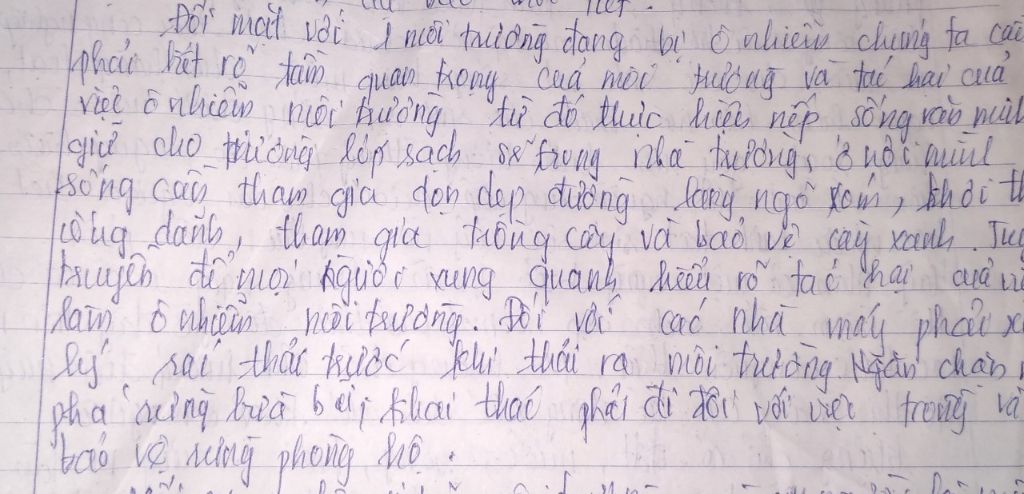 Đối mặt với 1 môi trường đang bị ô nhiễm chúng ta cần
phải biết rõ tầm quan trọng của môi trường và tác hại của
việc ô nhiễm môi trường từ đó thực hiện nếp sống văn minh
giữ cho trường lớp sạch sẽ trong nhà trường, ở nơi mình
sống cần tham gia dọn dẹp đường làng ngõ xóm, khơi th
cống rãnh, tham gia trồng cây và bảo vệ cây xanh. Tu
truyền để mọi người xung quanh hiểu rõ tác hại của v
làm ô nhiễm môi trường. Đối với các nhà máy phải x
lý rác thải trước khi thải ra môi trường. Ngăn chặn
phá rừng bừa bãi, khai thác phải đi đôi với việc trồng và
bảo vệ rừng phòng hộ.